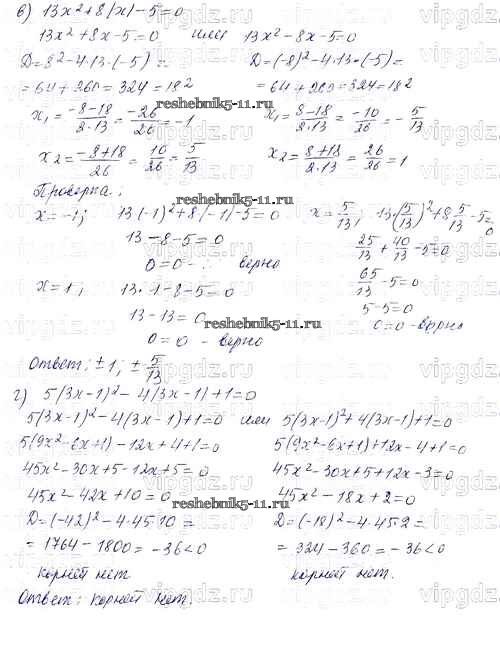 в) 13x²+8|x|-5=0
13x²+8x-5=0 или 13x²-8x-5=0
D=8²-4·13·(-5)= D=(-8)²-4·13·(-5)=
=64+260=324=18² =64+260=324=18²
x₁=(-8-18)/(2·13)=(-26)/26=-1 x₁=(8-18)/(2·13)=(-10)/26=-5/13
reshebnik5-11.ru
x₂=(-8+18)/26=10/26=5/13 x₂=(8+18)/(2·13)=26/26=1
Проверка:
reshebnik5-11.ru
x=-1; 13(-1)²+8|-1|-5=0 x=5/13; 13·(5/13)²+8·5/13-5=0
13-8-5=0 25/13+40/13-5=0
0=0 - верно 65/13-5=0
x=1; 13·1-8-5=0 5-5=0
13-13=0 0=0 - верно
reshebnik5-11.ru
0=0 - верно
Ответ: ±1; ±5/13
г) 5(3x-1)²-4|3x-1|+1=0
5(3x-1)²-4(3x-1)+1=0 или 5(3x-1)²+4(3x-1)+1=0
5(9x²-6x+1)-12x+4+1=0 5(9x²-6x+1)+12x-4+1=0
45x²-30x+5-12x+5=0 45x²-30x+5+12x-3=0
45x²-42x+10=0 45x²-18x+2=0
reshebnik5-11.ru
D=(-42)²-4·45·10= D=(-18)²-4·45·2=
=1764-1800=-36<0 =324-360=-36<0
корней нет корней нет.
Ответ: корней нет.
vipgdz.ru